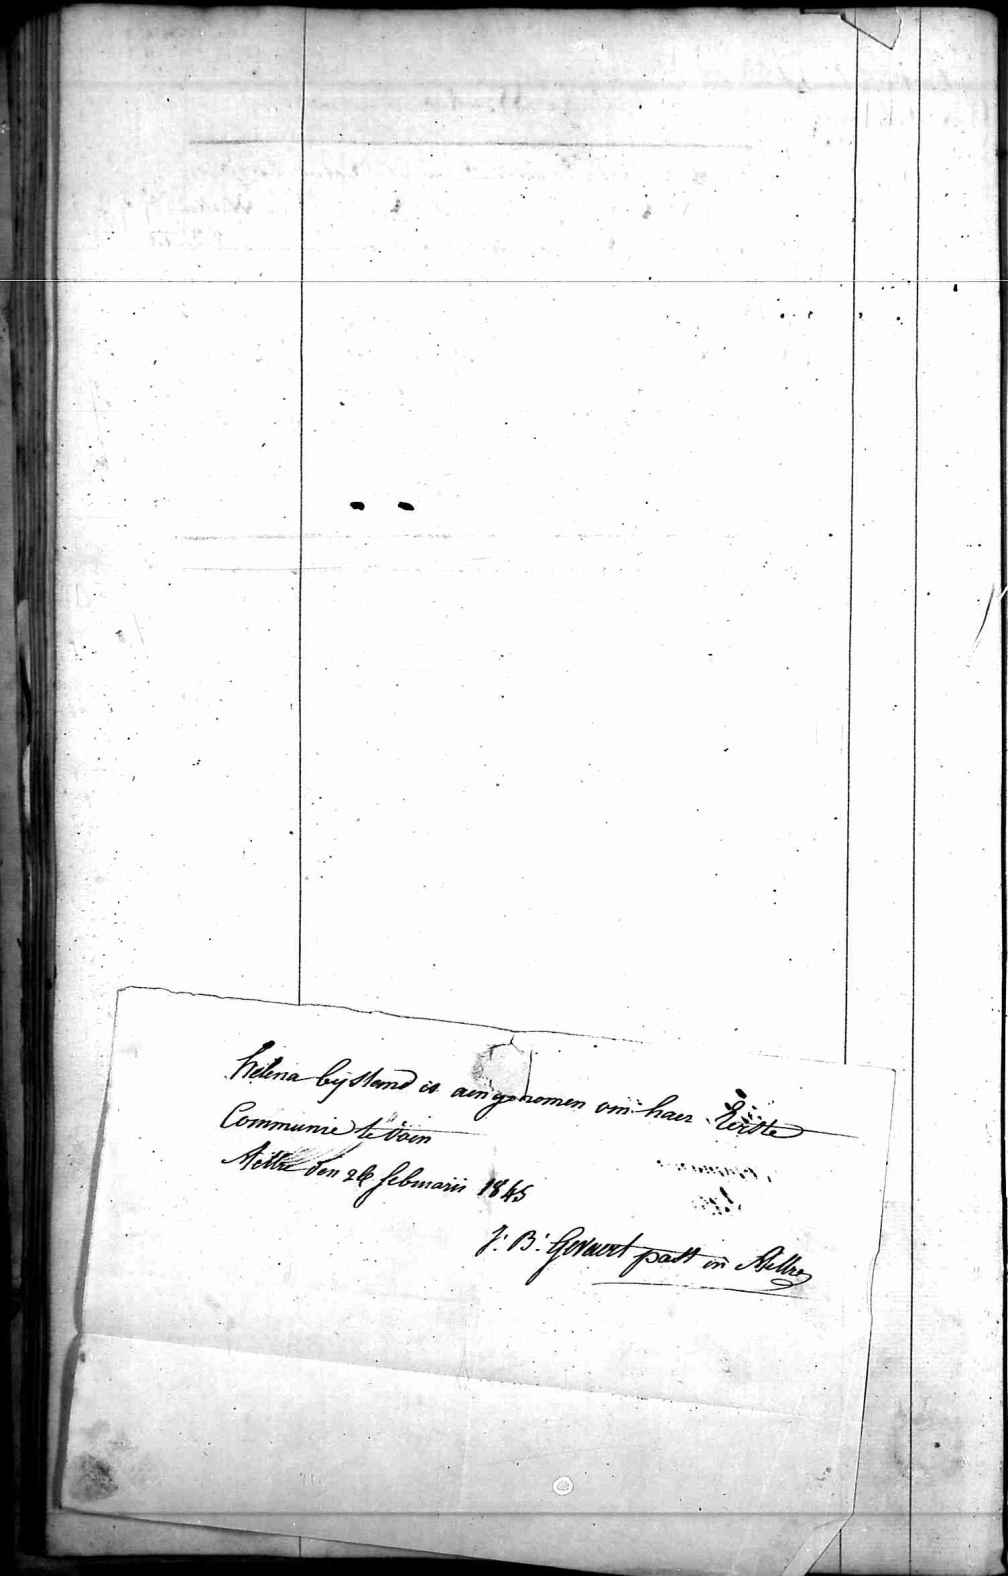 helena bijstand is aengenomen om haer Eerste
Communie te doen
Melle den 26 februarii 1845
J: B: Gevaert past in Melle